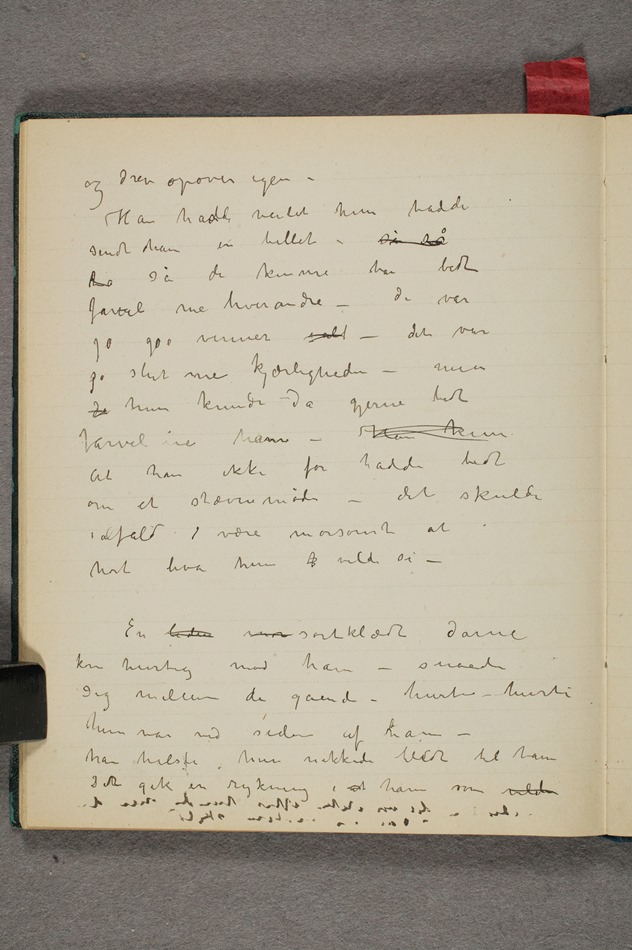 og drev opover igen –
Han hadde veilet hun hadde
sendt ham en billet – så så
Da så de kunne ha bedt
farvel me hverandre – de var
jo goe venner – det var
jo slut me kjærligheden – men
hun kunde da gjerne bedt
farvel me ham – Han kun
At han ikke før hadde bedt
om et stævnemøde – det skulde
ialfald være morsomt at
hørt hva hun vilde si –
En liden sortklædt dame
kom hurtig mod ham – snoede
sig mellem de gående – hurtig – hurti
hun var ved siden af ham –
han hilste, hun nikkede blødt til ham
Det gik en rykning i ham som vilde